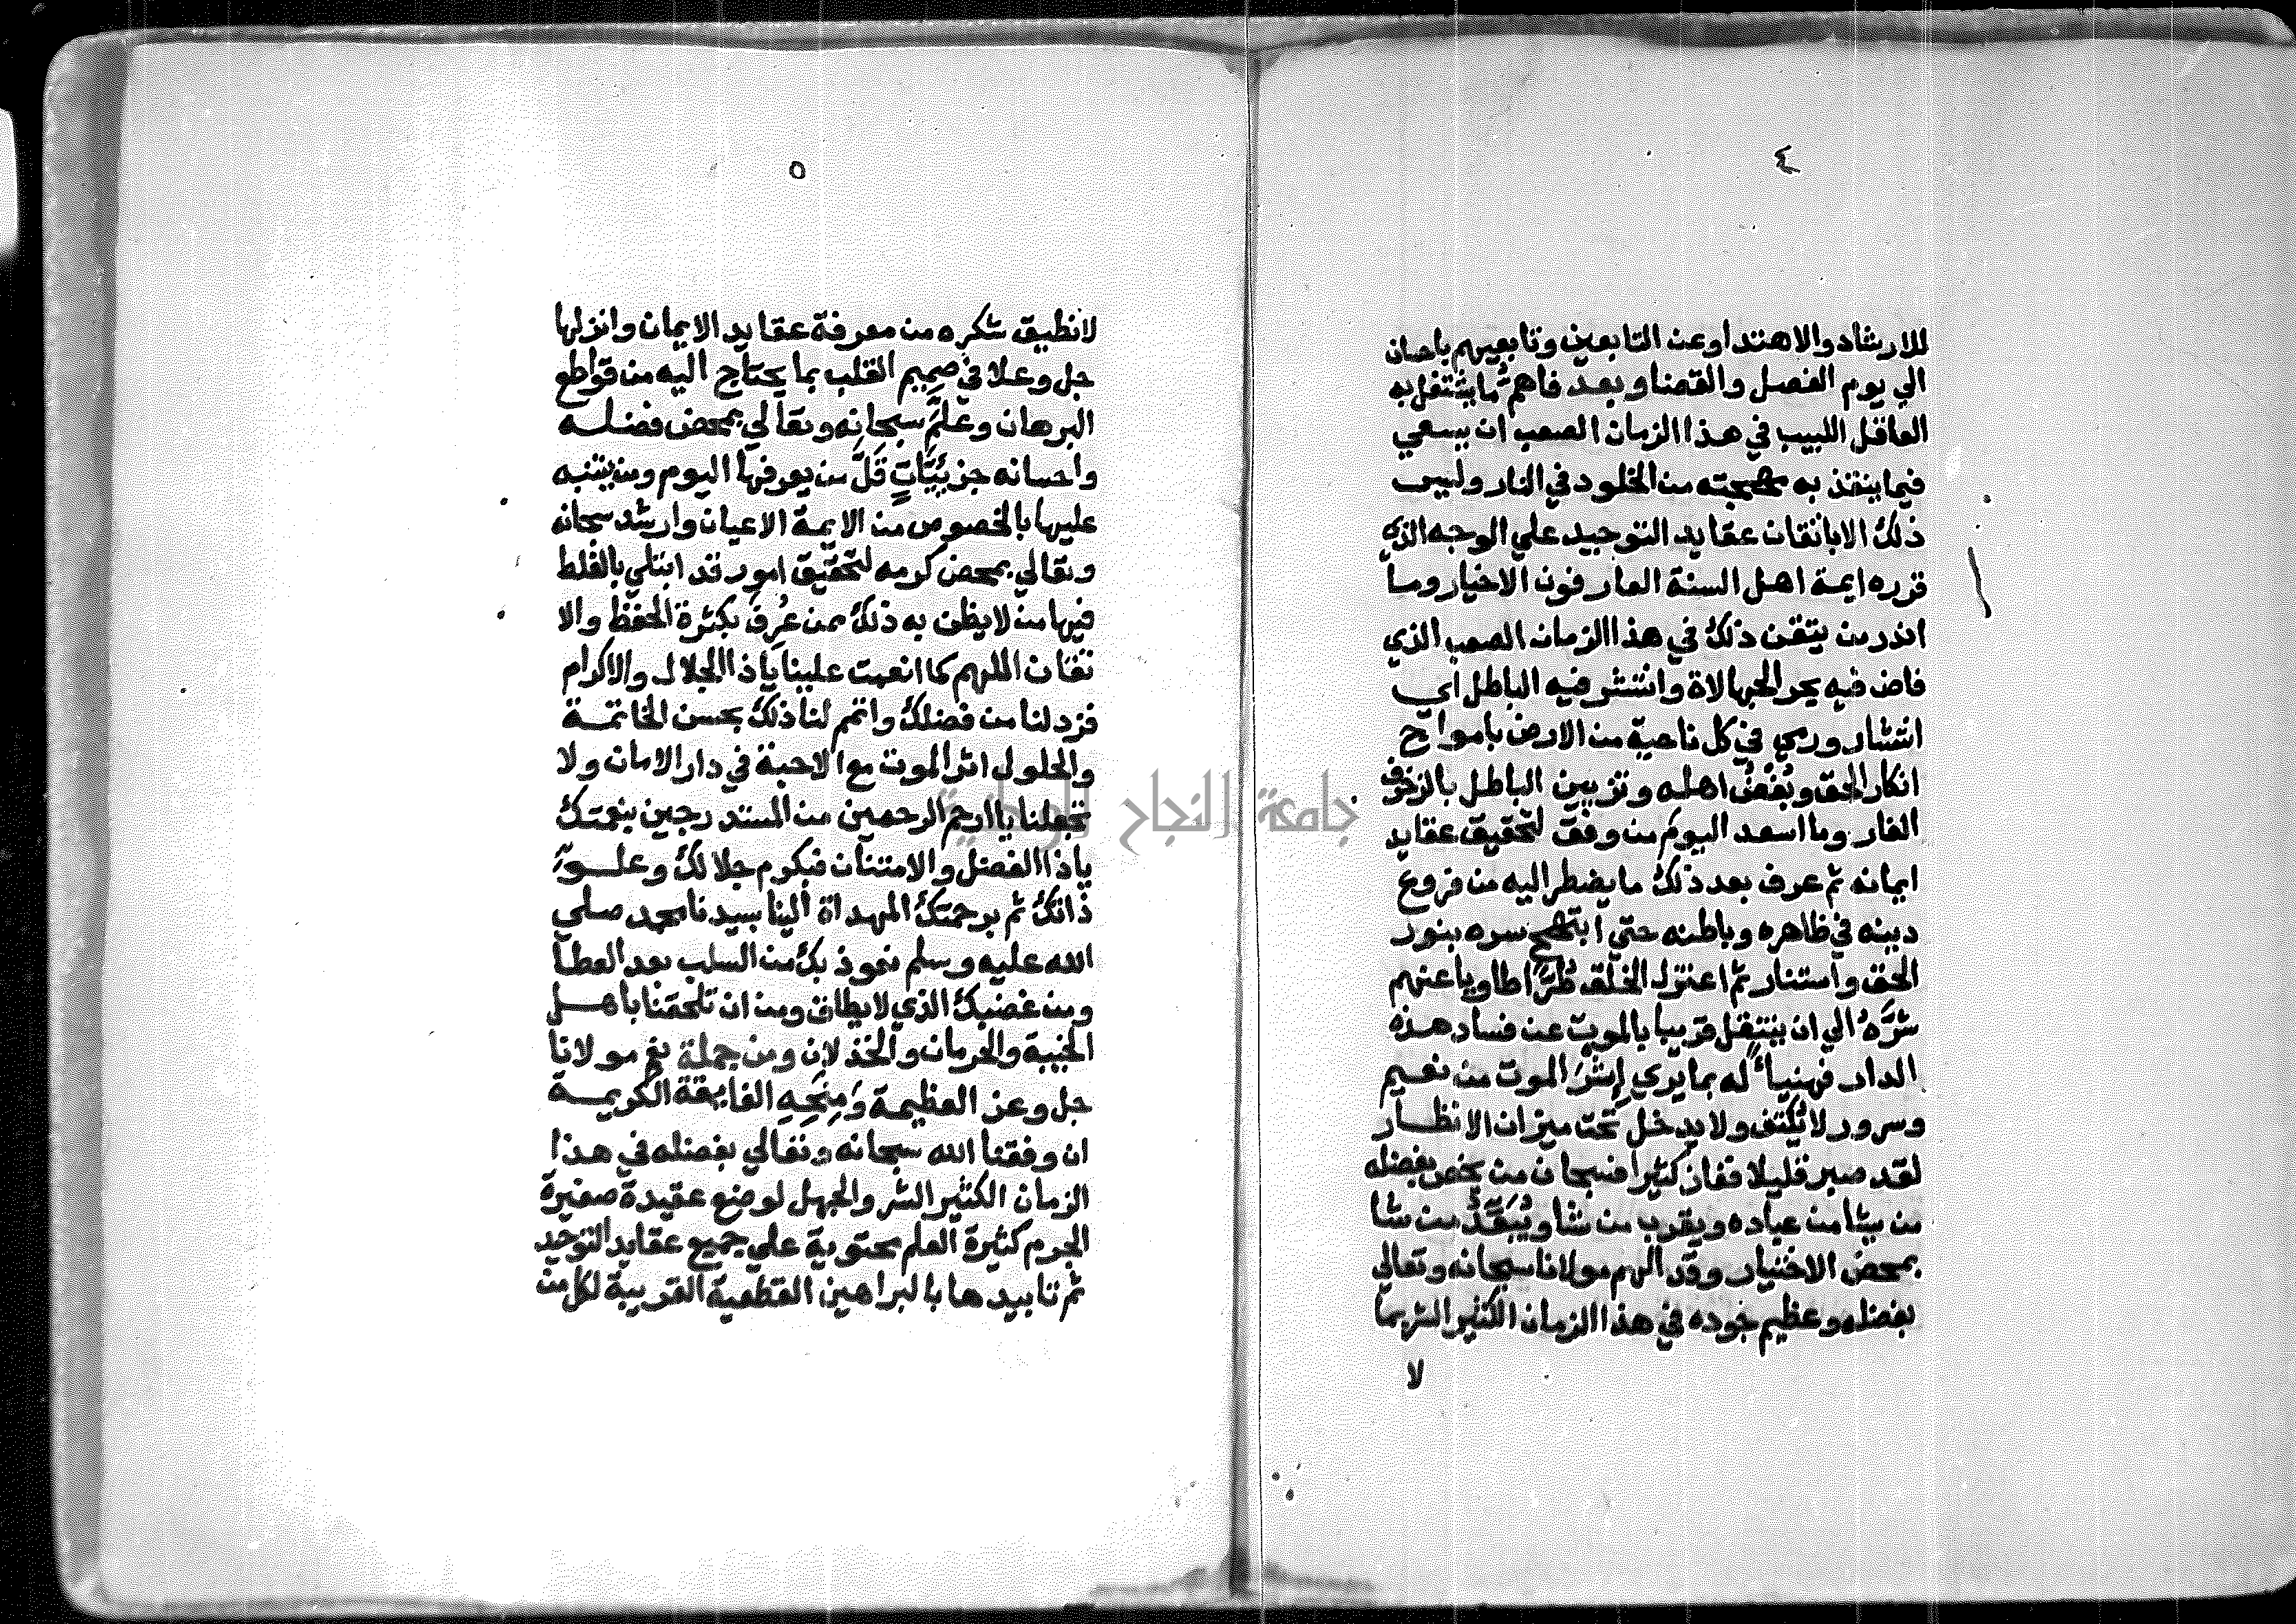 ٤
للارشاد والاهتدا وعن التابعين وتابعيهم باحسان
الي يوم الفصل والقضا وبعد فاهم ما يشتغل به
العاقل اللبيب في هذا الزمان الصعب ان يسعي
فيما ينقذ به مهجته من الخلود في النار وليس
ذلك الا باتقان عقايد التوحيد علي الوجه الذي
قرره ايمة اهل السنة العارفون الاخيار وما
اندر من يتقن ذلك في هذا الزمان الصعب الذي
فاض فيه بحر الجهالاة وانتشر فيه الباطل اي
انتشار ورمي في كل ناحية من الارض بامواج
انكار الحق وبُغْض اهله وتزيين الباطل بالزخرف
الغار وما اسعد اليوم من وفق لتحقيق عقايد
ايمانه ثم عرف بعد ذلك ما يضطر اليه من فروع
دينه في ظاهره وباطنه حتي ابتهج سره بنور
الحق واستنار ثم اعتزل الخلق طُرًّا طاويا عنهم
شرَّهُ الي ان ينتقل قريبا بالموت عن فساد هذه
الدار فهنياً له بما يري إِثرَ الموت من نعيم
وسرور لا يُكيَّف ولا يدخل تحت ميزان الانظار
لقد صبر قليلا ففاز كثيرا فسبحان من يخص بفضله
من يشا من عباده ويقرب من شا ويُبَعِّدُ من شا
بمحض الاختيار وقد الهم مولانا سبحانه وتعالي
بفضله وعظيم جوده في هذا الزمان الكثير الشر بما
لا
٥
لا نطيق شكره من معرفة عقايد الايمان وانزلها
جل وعلا في صميم القلب بما يحتاج اليه من قواطع
البرهان وعلم سبحانه وتعالي بمحض فضله
واحسانه جزئيَّاتٍ قَلَّ من يعرفها اليوم ومن يتنبه
عليها بالخصوص من الايمة الاعيان وارشد سبحانه
وتعالي بمحض كرمه لتحقيق امور قد ابتلي بالغلط
فيها من لا يظن به ذلك ممن عُرِفَ بكثرة الحفظ والا
تقان اللهم كما انعمت علينا ياذا الجلال والاكرام
فزد لنا من فضلك واتم لنا ذلك بحسن الخاتمة
والحلول اثر الموت مع الاحبة في دار الامان ولا
تجعلنا يا ارحم الرحمين من المستدرجين بنعمتك
ياذا الفضل والامتنان فبكرم جلالك وعلو
ذاتك ثم برحمتك المهداة الينا سيدنا محمد صلي
الله عليه وسلم نعوذ بك من السلب بعد العطا
ومن غضبك الذي لا يطاق ومن ان تلحقنا باهل
الخيبة والحرمان والخذلان ومن جملة نعم مولانا
جل وعز العظيمة وَمِنَحِهِ الفايقة الكريمة
ان وفقنا الله سبحانه وتعالي بفضله في هذا
الزمان الكثير الشر والجهل لوضع عقيدة صغيرة
الجرم كثيرة العلم محتوية علي جميع عقايد التوحيد
ثم تاييدها بالبراهين القطعية القريبة لكل من
جامعة النجاح الوطنية